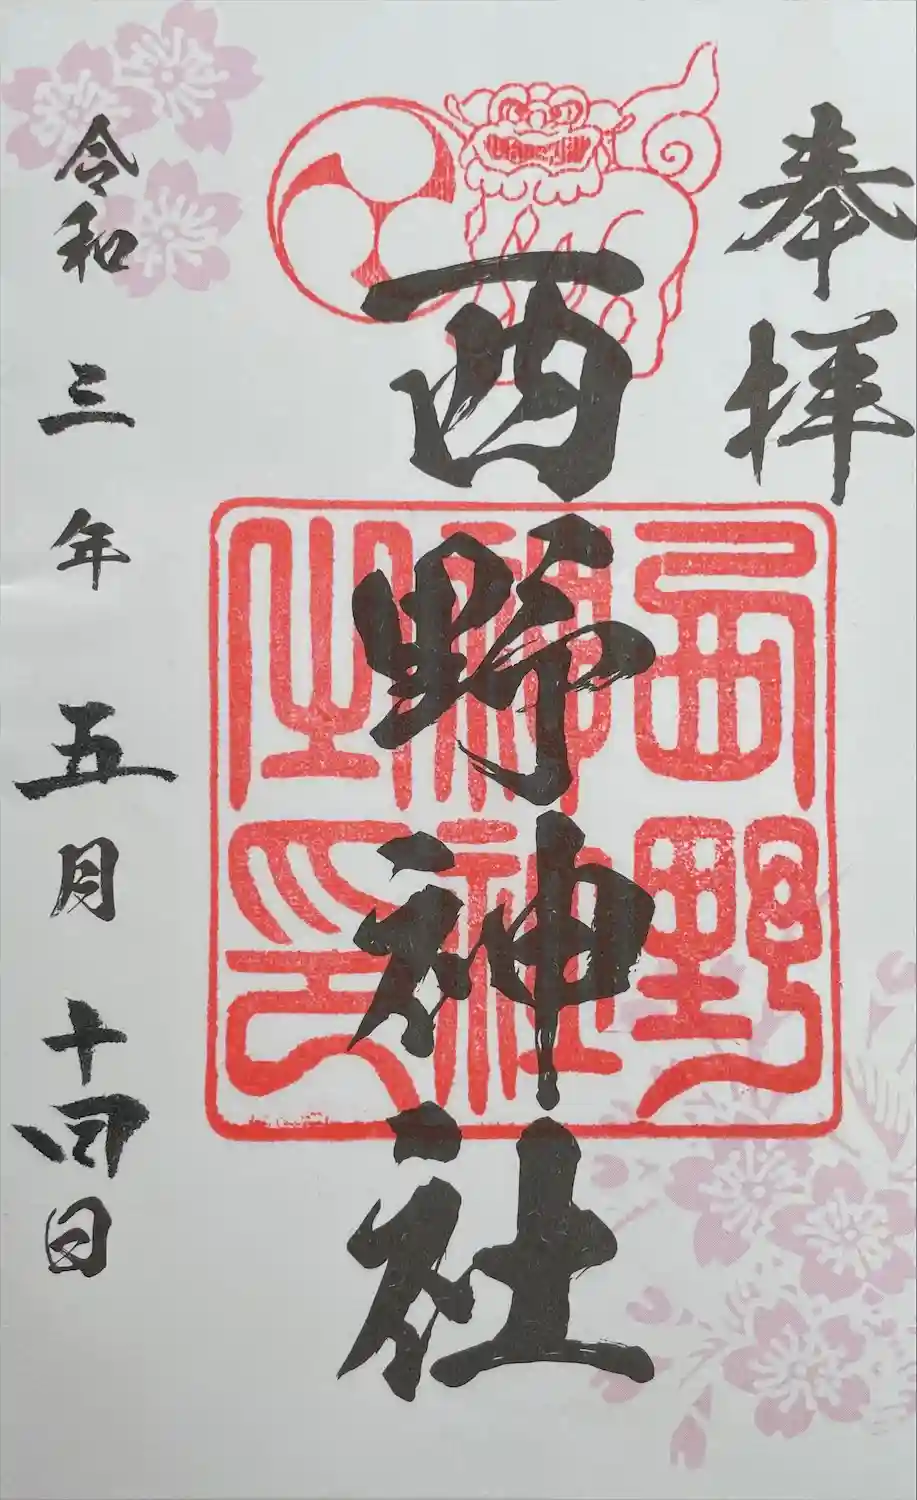 奉拝
西野神社
西野
神社
之印
令和三年五月十四日